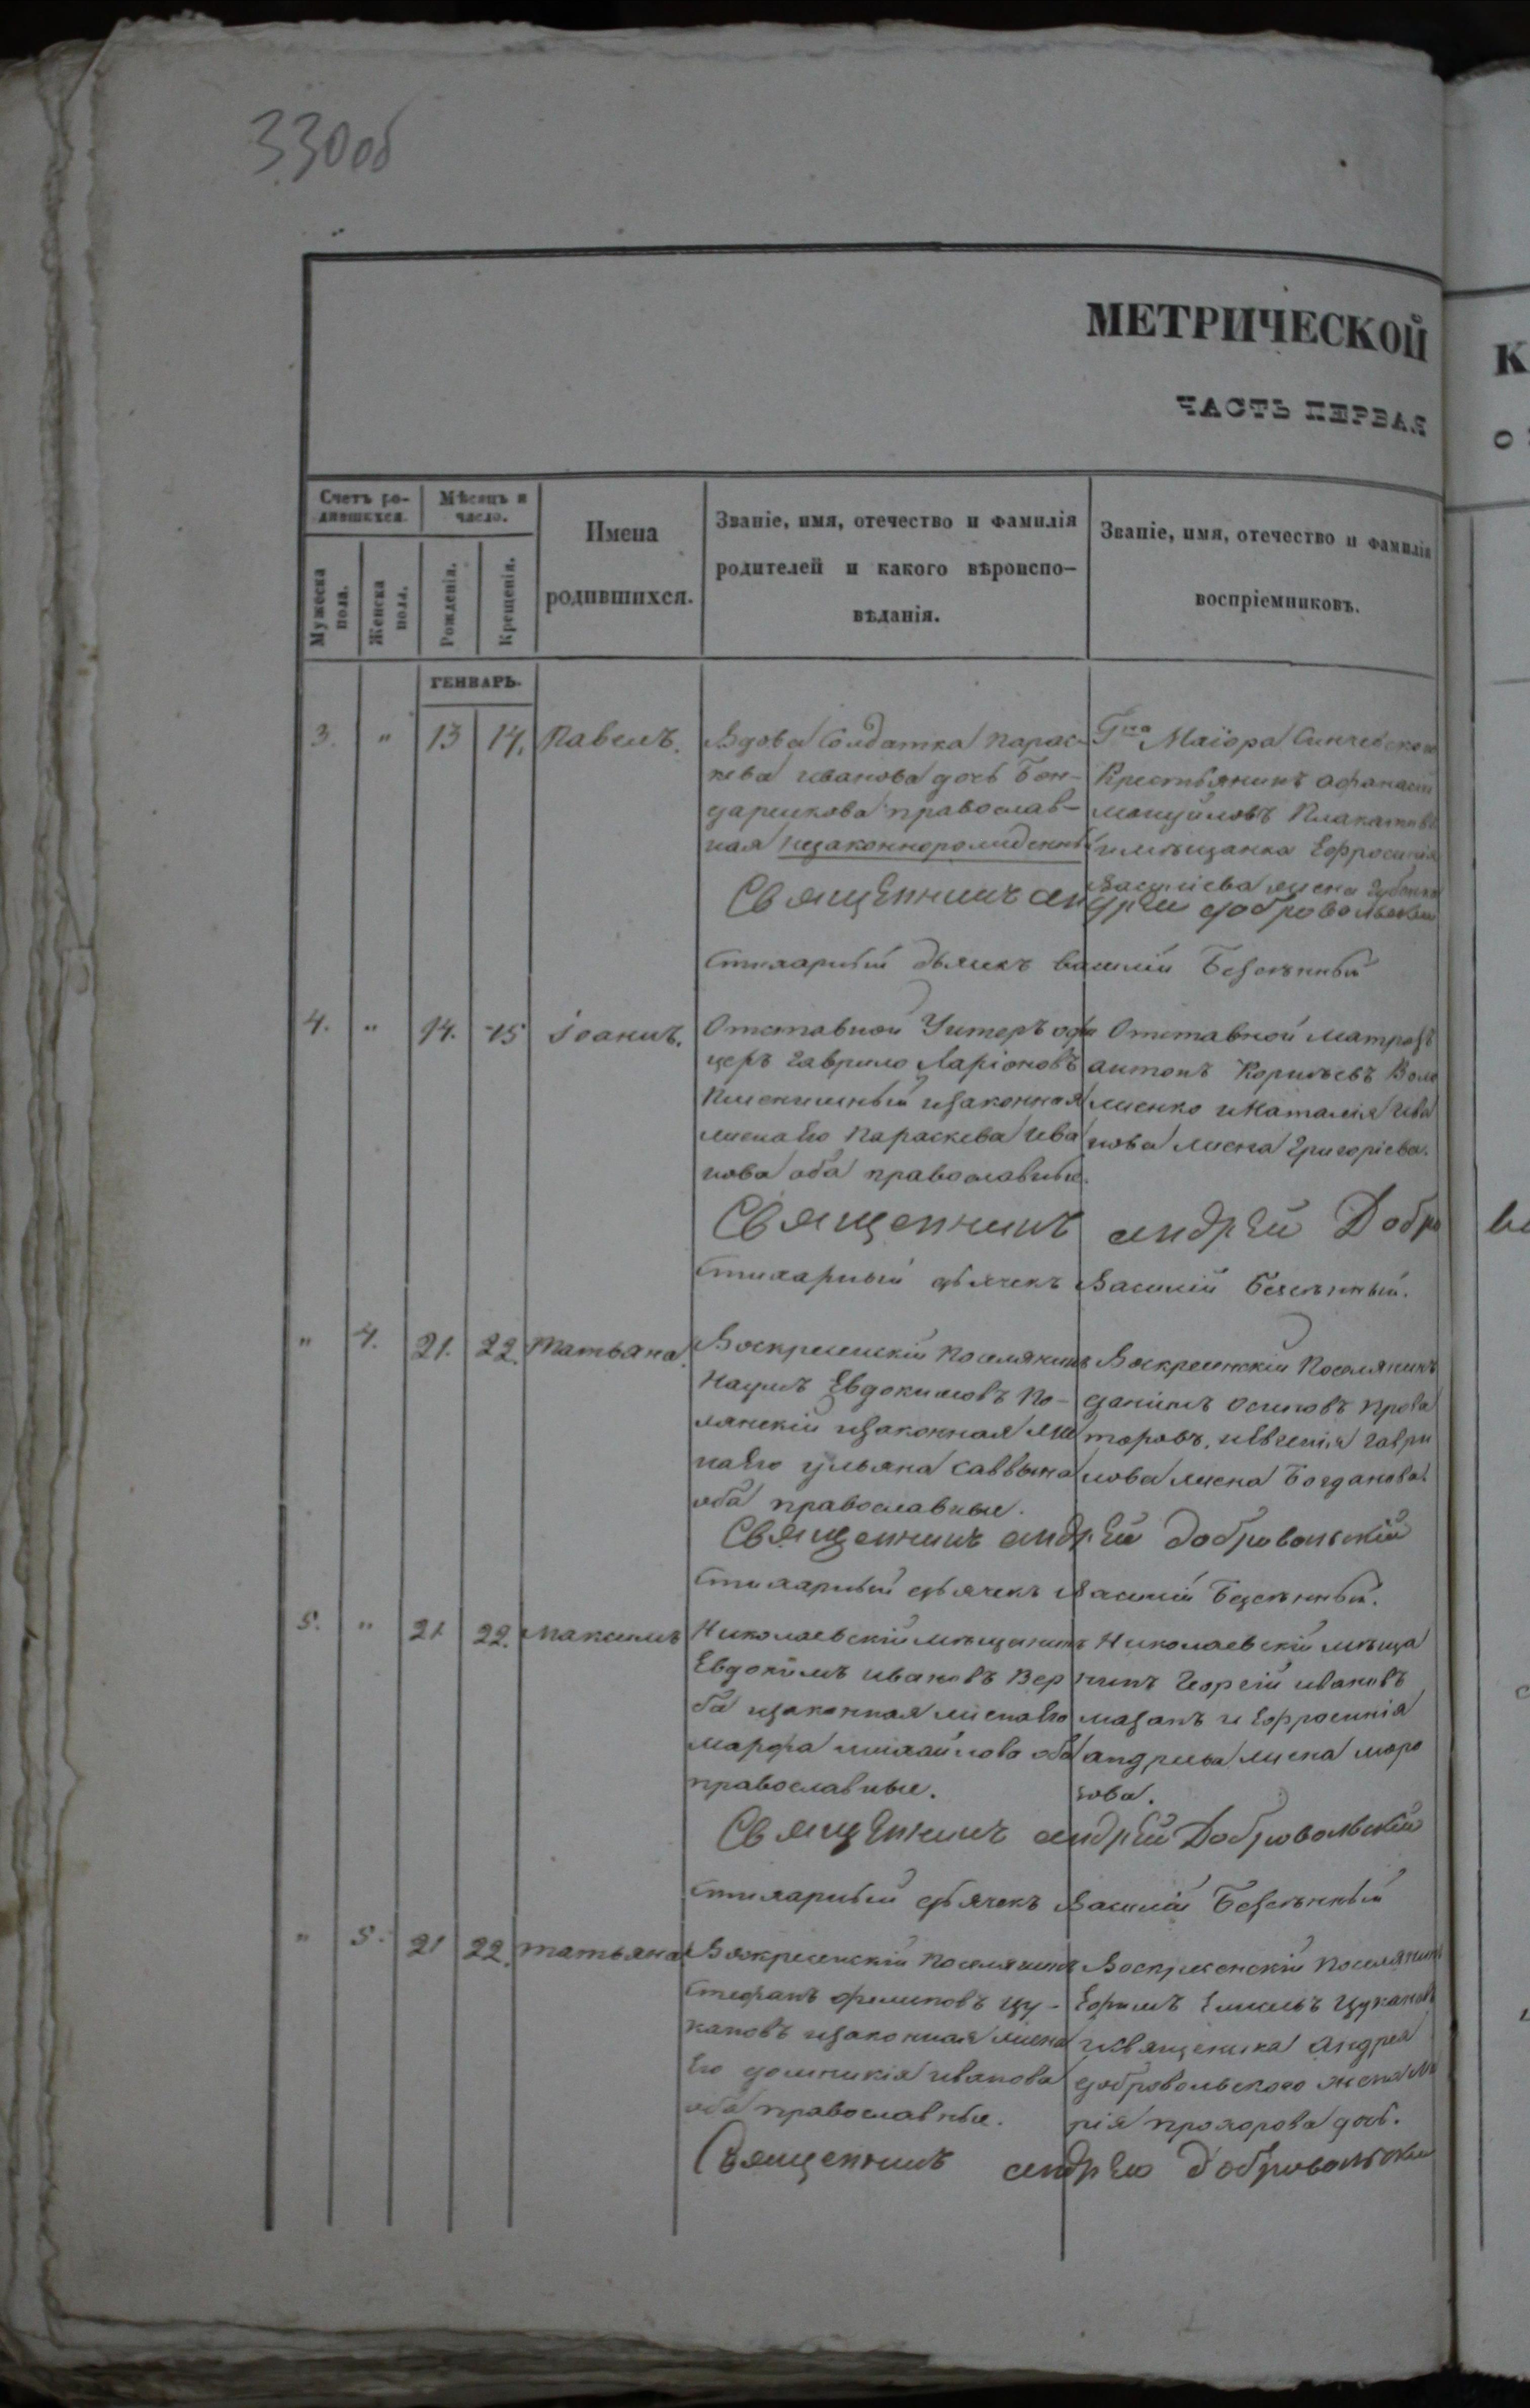 330об
МЕТРИЧЕСКОЙ
ЧАСТЬ ПЕРВАЯ
К
Счетъ ро-
дившихся.
Мѣсяцъ и
число.
Мужеска
пола.
Женска
пола.
Рожденія.
Крещенія.
Имена
родившихся.
Званіе, имя, отечество и фамилія
родителей и какого вѣроиспо-
вѣданія.
Званіе, имя, отечество и фамилія
воспріемниковъ.
ГЕНВАРЬ.
3. " 13 14. Павелъ.
Вдова Солдатка Парас-
кева Иванова дочь Бон-
даренкова православ-
ная незаконнорожденный
Гна Маіора
Крестьянинъ Афанасій
и мѣщанка Ефросинія
Василіева жена
Священникъ Андрей Добровольскій
Стихарный дьячекъ Василій Безсѣнный
4. " 14. 15 Іоаннъ.
Отставной Унтеръ офи
церъ Гаврило Ларіоновъ
Пшенишный изаконная
жена Его Параскева Ива
нова оба православные.
Отставной матрозъ
Антонъ Корнѣевъ Воло
шенко и Наталія Ива
нова жена Григоріева.
Священникъ Андрей Добро
Стихарный дьячекъ Василій Безсѣнный.
" 4. 21. 22. Татьяна.
Воскресенскій Поселянинъ
Наумъ Евдокимовъ По-
лянскій изаконная же
на Его Ульяна Саввына
оба православные.
Воскресенскій Поселянинъ
Даніилъ Осиповъ Прова
торовъ, и Евгенія Гаври
лова жена Богданова.
Священникъ Андрей Добровольскій
Стихарный дьячекъ Василій Безсѣнный.
5. " 21 22. Максимъ
Николаевскій мѣщанинъ
Евдокимъ Ивановъ Вер
ба изаконная жена Его
Марфа Михайлова оба
православные.
Николаевскій мѣща
нинъ Георгій Ивановъ
Мазанъ и Ефросинія
Андреева жена Моро
зова.
Священникъ Андрей Добровольскій
Стихарный дьячекъ Василій Безсѣнный
" 5. 21 22. Татьяна
Воскресенскій Поселянинъ
Стефанъ Филиповъ Цу-
кановъ изаконная жена
Его Домникія Иванова
оба православные.
Воскресенскій Поселянинъ
Ефимъ Цукановъ
и Священика Андрея
Добровольского жена Ма
рія Прохорова дочь.
Священникъ Андрей Добровольскій